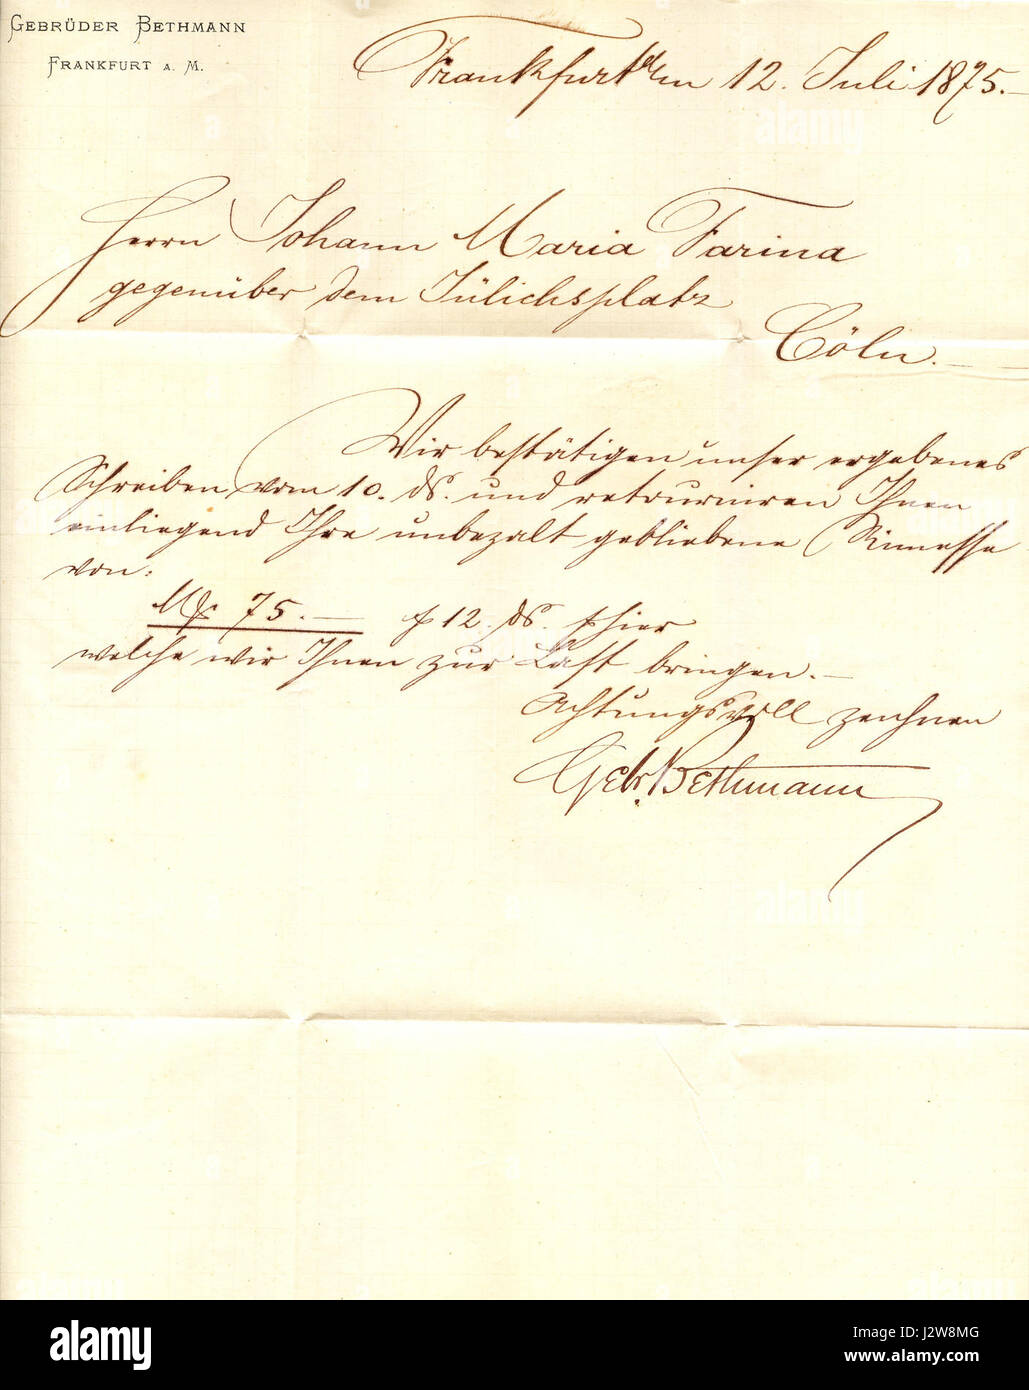 GEBRÜDER BETHMANN
FRANKFURT A. M.
Frankfurt a/m 12. Juli 1875.
Herrn Johann Maria Farina
gegenüber dem Jülichsplatz
Cöln.
Wir bestätigen unser ergebenes
Schreiben vom 10. ds. und retourniren Ihnen
einliegend Ihre unbezalt gebliebene Rimesse
von:
Mk 75.— p 12. ds. hier
welche wir Ihnen zur Last bringen.—
Achtungsvoll zeichnen
Gebr. Bethmann
alamy
Image ID: J2W8MG
www.alamy.com